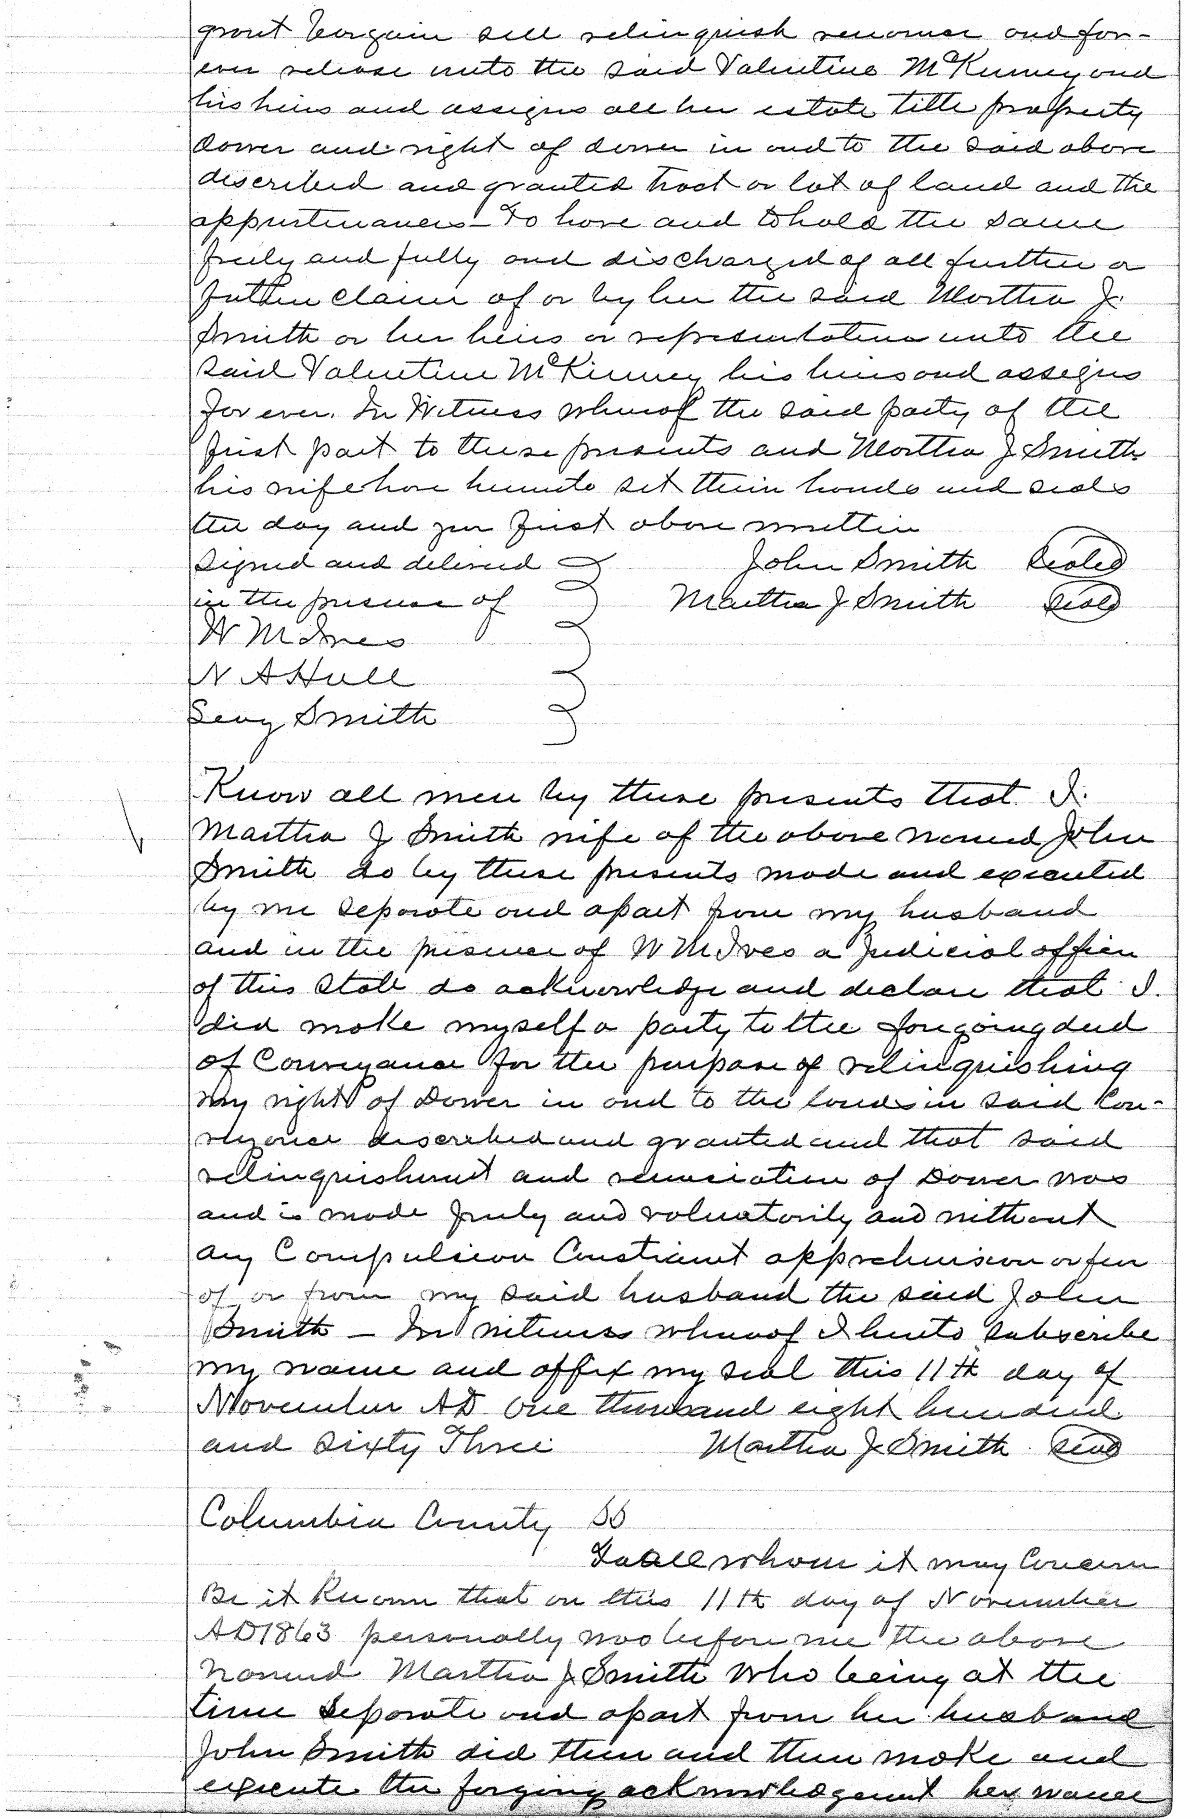 grant bargain sell relinquish renounce and for-
ever release unto the said Valentine McKinney and
his heirs and assigns all her estate title property
dower and right of dower in and to the said above
discribed and granted tract or lot of land and the
appurtinances - To have and to hold the same
freely and fully and discharged of all further or
futher claim of or by her the said Martha J.
Smith or her heirs or representatives unto the
said Valentine McKinney his heirs and assigns
for ever. In Witness whereof the said party of the
first part to these presents and Martha J Smith
his wife have hereunto set their hands and seals
the day and year first above written
Signed and delivered John Smith Sealed
in the presence of Martha J Smith Seal
W M Ives
N A Hull
Levy Smith
Know all men by these presents that I.
Martha J Smith wife of the above named John
Smith do by these presents made and executed
by me separate and apart from my husband
and in the presence of W M Ives a Judicial officer
of this State do acknowledge and declare that I.
did make myself a party to the foregoing deed
of Conveyance for the purpose of relinquishing
my right of Dower in and to the lands in said Con-
veyance discribed and granted and that said
relinquishment and renunciation of Dower was
and is made freely and voluntarily and without
any Compulsion Constraint apprehension or fear
of or from my said husband the said John
Smith - In witness whereof I hereto subscribe
my name and affix my seal this 11th day of
November AD one thousand eight hundred
and Sixty Three Martha J Smith Seal
Columbia County SS
To all whom it may Concern
Be it Known that on this 11th day of November
AD 1863 personally was before me the above
named Martha J Smith who being at the
time separate and apart from her husband
John Smith did then and there make and
execute the forgoing acknowledgment her name